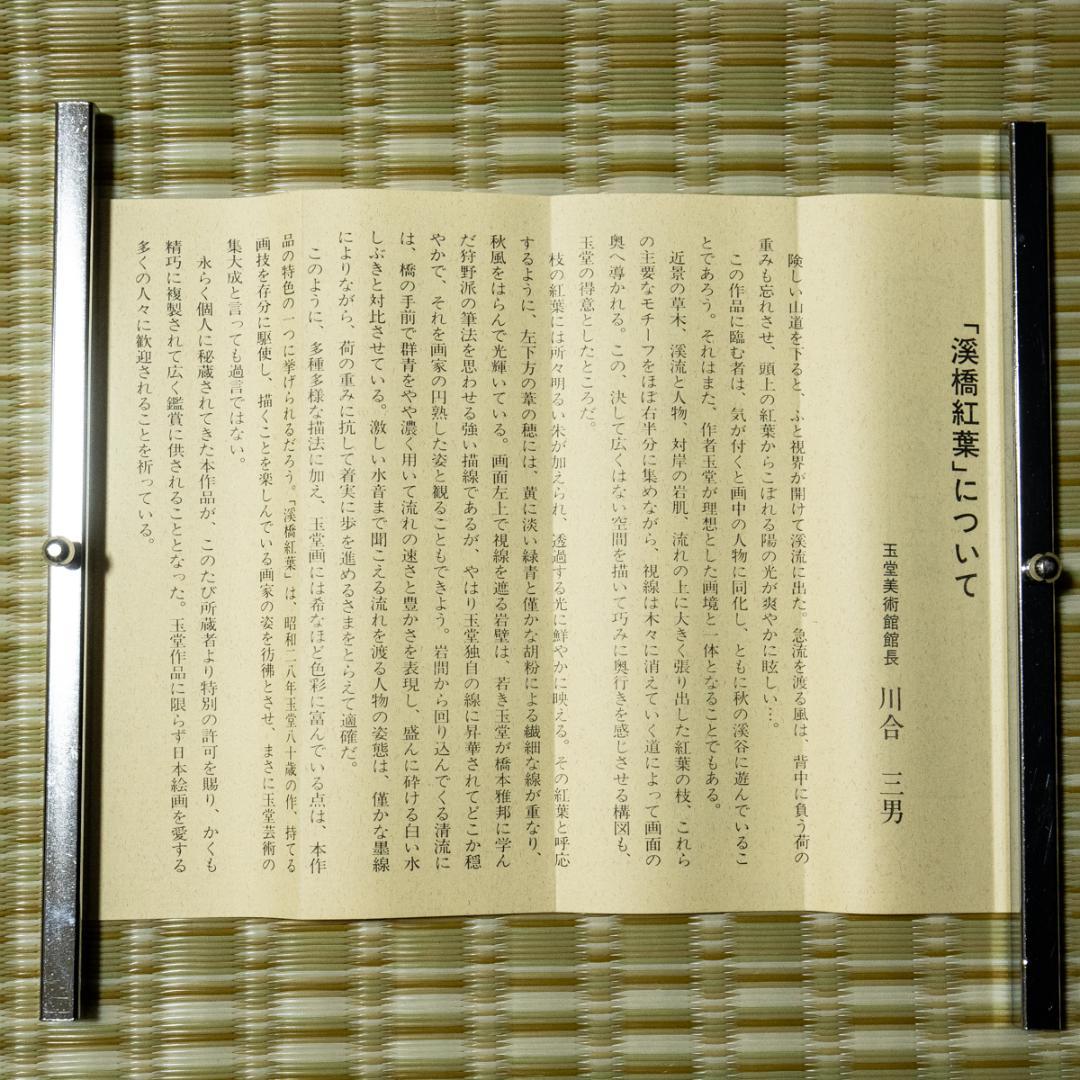 「溪橋紅葉」について
玉堂美術館館長　川合　三男
険しい山道を下ると、ふと視界が開けて渓流に出た。急流を渡る風は、背中に負う荷の
重みも忘れさせ、頭上の紅葉からこぼれる陽の光が爽やかに眩しい…。
この作品に臨む者は、気が付くと画中の人物に同化し、ともに秋の渓谷に遊んでいるこ
とであろう。それはまた、作者玉堂が理想とした画境と一体となることでもある。
近景の草木、渓流と人物、対岸の岩肌、流れの上に大きく張り出した紅葉の枝、これら
の主要なモチーフをほぼ右半分に集めながら、視線は木々に消えていく道によって画面の
奥へ導かれる。この、決して広くはない空間を描いて巧みに奥行きを感じさせる構図も、
玉堂の得意としたところだ。
枝の紅葉には所々明るい朱が加えられ、透過する光に鮮やかに映える。その紅葉と呼応
するように、左下方の葦の穂には、黄に淡い緑青と僅かな胡粉による繊細な線が重なり、
秋風をはらんで光輝いている。画面左上で視線を遮る岩壁は、若き玉堂が橋本雅邦に学ん
だ狩野派の筆法を思わせる強い描線であるが、やはり玉堂独自の線に昇華されてどこか穏
やかで、それを画家の円熟した姿と観ることもできよう。岩間から回り込んでくる清流に
は、橋の手前で群青をやや濃く用いて流れの速さと豊かさを表現し、盛んに砕ける白い水
しぶきと対比させている。激しい水音まで聞こえる流れを渡る人物の姿態は、僅かな墨線
によりながら、荷の重みに抗して着実に歩を進めるさまをとらえて適確だ。
このように、多種多様な描法に加え、玉堂画には希なほど色彩に富んでいる点は、本作
品の特色の一つに挙げられるだろう。「溪橋紅葉」は、昭和二八年玉堂八十歳の作、持てる
画技を存分に駆使し、描くことを楽しんでいる画家の姿を彷彿とさせ、まさに玉堂芸術の
集大成と言っても過言ではない。
永らく個人に秘蔵されてきた本作品が、このたび所蔵者より特別の許可を賜り、かくも
精巧に複製されて広く鑑賞に供されることとなった。玉堂作品に限らず日本絵画を愛する
多くの人々に歓迎されることを祈っている。